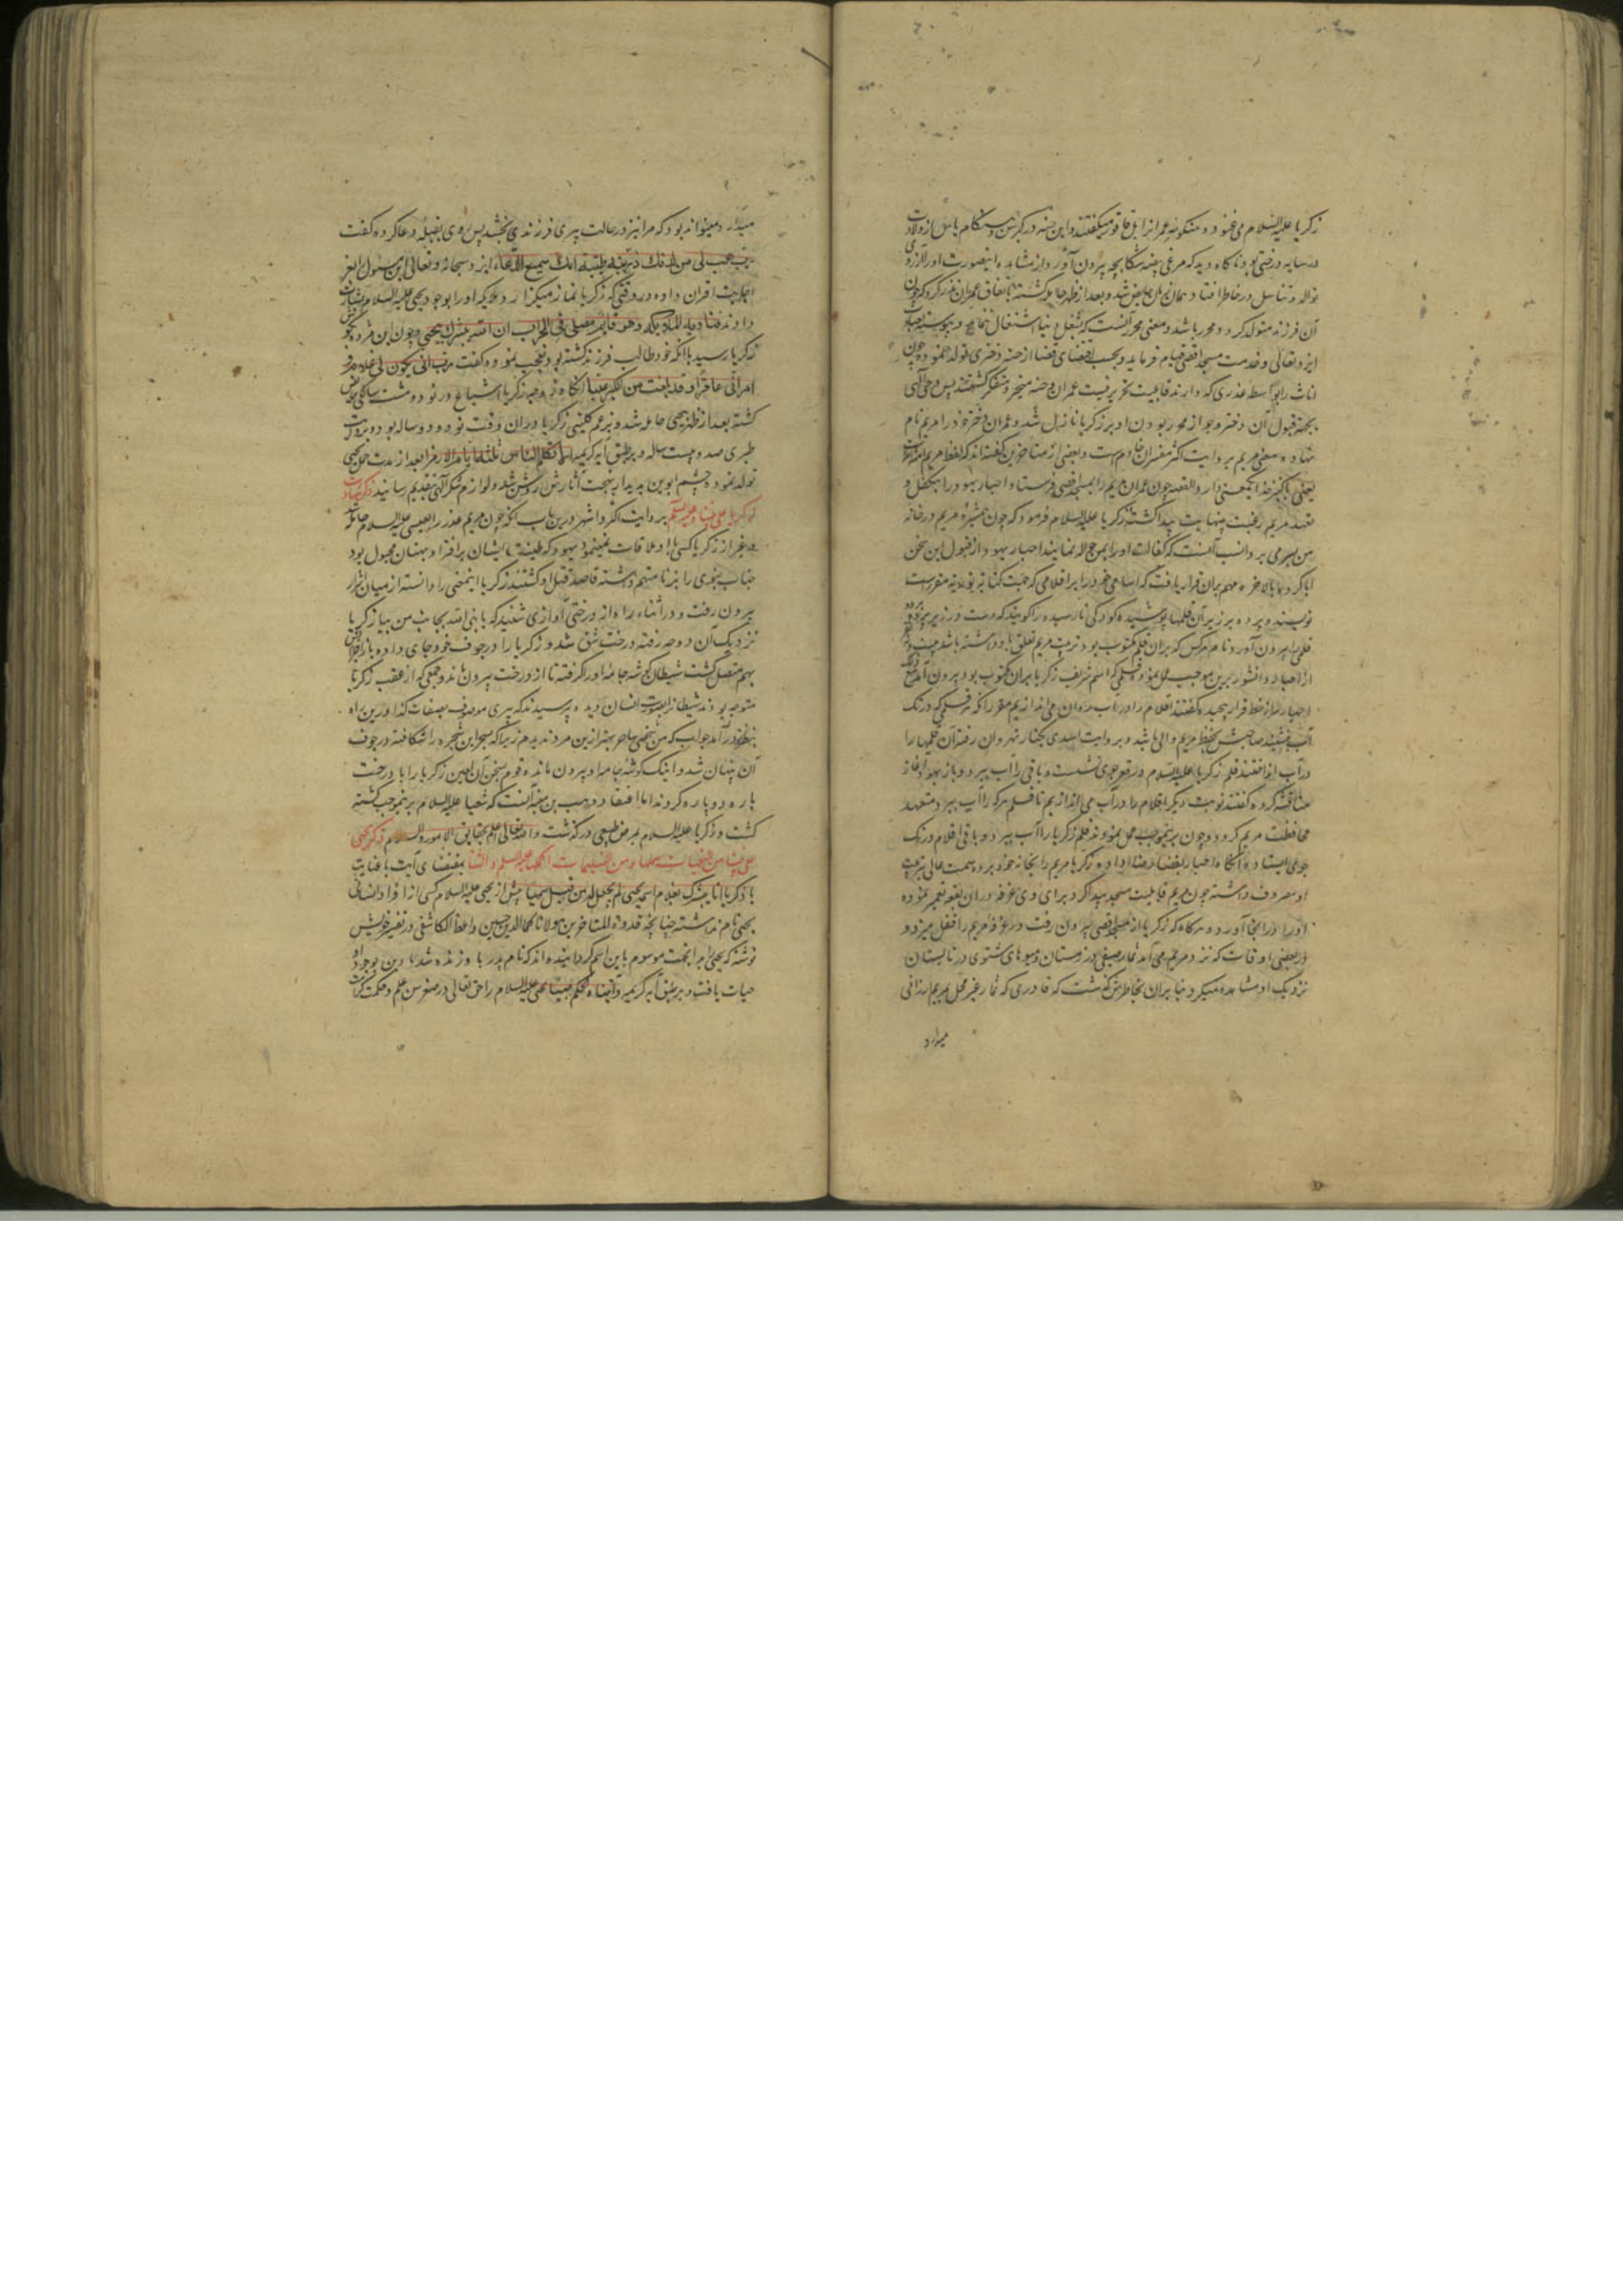 زکریا علیه السلام می نمود و منکوحه عمرانرا ایشاع فاقوز میکفتند و این حنه در کبر سن و هنکام یاس از ولادت
در سایه درختی بود ناکاه دید که مرغی بچه را
توالد و تناسل در خاطر افتاد همان زمان حایض شد و بعد از طهر حامله کشته باتفاق عمران نذر کرد که چون
آن فرزند متولد کردد محرر باشد و معنی محرر آنست که بشغل دنیا اشتغال ننماید و پیوسته بعبادت
ایزد تعالی و خدمت مسجد اقصی قیام فرماید و بحسب اقتضای قضا از حنه دختری تولد نمود و چون
اناث را بواسطه عذری که دارند قابلیت تحریر نیست عمران و حنه متحیر و متفکر کشتند پس وحی الهی
بجهة قبول آن دختر و جواز محرر بودن او بر زکریا نازل شد و عمران دختر خود را مریم نام
نهاده معنی مریم بروایت اکثر مفسران خادم است و بعضی از متاخرین کفته اند که لفظ مریم
یعنی والقصه چون عمران مریم را بمسجد اقصی فرستاد احبار یهود را بتکفل و
تعهد مریم رغبت بنهایت پیدا کشته زکریا علیه السلام فرمود که چون همشیره مریم در خانه
من بسر می برد انسب آنست که کفالت او را بمن حواله نمایند احبار یهود از قبول این سخن
ابا کردند بالاخره مهم بران قرار یافت که اسامی خود را بر اقلامی که جهت کتابة توریة مقرر است
نویسند و پرده بر زبر آن قلمها پوشیده کودکی نارسیده را کویند که دست در زیر پرده برده
قلمی بیرون آورد نام هر کس که بران قلم مکتوب بود تربیت مریم تعلق باو داشته باشد
از احبار دانشور برین موجب عمل نموده قلمی که اسم شریف زکریا بران مکتوب بود بیرون آمد
احبار سر از خط قرار پیچیده کفتند اقلام را در آب روان می اندازیم مقرر آنکه هر قلمی که در تک
آب نشیند صاحبش بحفظ مریم والی باشد و بروایت اسدی بکنار نهر روان رفته آن قلمها را
در آب انداختند قلم زکریا علیه السلام در قعر جوی نشست و باقی را آب ببرد و باز یهود آغاز
مناقشه کرده کفتند نوبت دیکر اقلام را در آب می اندازیم تا قلم هر که را آب ببرد متعهد
محافظت مریم کردد و چون برینموجب عمل نمودند قلم زکریا را آب ببرد و باقی اقلام در تک
جوی ایستاده آنکاه احبار بقضا رضا داده زکریا مریم را بخانه خود برده همت عالی بتربیت
او مصروف داشته چون مریم قابلیت مسجد پیدا کرد برای وی غرفه در ان بقعه تعمیر نموده
او را در انجا آورد و هرکاه که زکریا از مسجد اقصی بیرون رفت در غرفه مریم را قفل میزد و
در بعضی اوقات که نزد مریم می آمد ثمار صیفی در زمستان و میوهای شتوی در تابستان
نزدیک او مشاهده میکرد بنابران بخاطرش کذشت که قادری که ثمار غیر محل بمریم ارزانی
میدارد
میدارد میتواند بود که مرا نیز در حالت پیری فرزندی بخشد پس روی بقبله دعا کرده کفت
رب هب لی من لدنک ذریة طیبة انک سمیع الدعاء ایزد سبحانه و تعالی این مسئول را بعز
اجابت اقران داده در وقتی که زکریا نماز میکزارد ملایکه او را بوجود یحیی علیه السلام بشارت
دادند فنادته الملائکه و هو قائم یصلی فی المحراب ان الله یبشرک بیحیی و چون این مژده بکوش
زکریا رسید با آنکه خود طالب فرزند کشته بود تعجب نموده کفت رب انی یکون لی غلام و
امراتی عاقرا و قد بلغت من الکبر عتیا آنکاه زوجه زکریا اشیاع در نود و هشت سالکی حایض
کشته بعد از طهر بیحیی حامله شد و بزعم کلینی زکریا دران وقت نود و دو ساله بود و بروایت
طبری صد و بیست ساله و بر طبق آیه کریمه الا تکلم الناس ثلثة ایام الا رمزا بعد از مدت حمل یحیی
تولد نموده چشم ابوین بدیدار بهجت آثارش روشن شد و لوازم شکر الهی بتقدیم رسانید ذکر شهادت
زکریا علی نبینا و علیه السلم بروایت اکثر و اشهر درین باب آنکه چون مریم عذرا بعیسی علیه السلام حامله شد
و بغیر از زکریا کسی با او ملاقات نمینمود یهود که طینت ایشان بر افترا و بهتان مجبول بود
جناب نبوی را بزنا متهم داشته قاصد قتل او کشتند زکریا اینمعنی را دانسته از میان اشرار
بیرون رفت و در اثناء راه از درختی آوازی شنید که یا نبی الله بجانب من بیا زکریا
نزدیک آن دوحه رفته درخت شق شد و زکریا را در جوف خود جای داده باز اجزایش
بهم متصل کشت شیطان کوشه جامه او را کرفته تا از درخت بیرون ماند و جمعی که از عقب زکریا
متوجه بودند شیطانرا بصورت انسان دیده پرسیدند که پیری موصوف بصفات کذا درین راه
بنظر تو در آمد جواب که من شخصی ساحرتر ازین مرد ندیدم زیرا که بسحر این شجره را شکافته در جوف
آن پنهان شد و اینک کوشه جامه او بیرون مانده قوم بسخن آن لعین زکریا را با درخت
پاره دوپاره کردند اما اعتقاد وهب بن منبه آنست که شعیا علیه السلام برینموجب کشته
کشت و زکریا علیه السلام بمرض طبیعی در کذشت والله تعالی اعلم بحقایق الامور ذکر یحیی
علی نبینا من التحیات و من التسلیمات اکملها علیه السلم و الثنا بمقتضای آیت با عنایت
یا زکریا انا نبشرک بغلام اسمه یحیی لم نجعل له من قبل سمیا پیش از یحیی علیه السلام کسی از افراد انسانی
یحیی نام نداشته چنانچه قدوة المتاخرین مولانا کمال الدین حسین واعظ الکاشفی در تفسیر خویش
نوشته که یحیی را بدانجهت موسوم باین اسم کردانیده اند که نام پدر باو زنده شد یا دین بوجود او
حیات یافت و بر طبق آیه کریمه و آتیناه الحکم صبیا یحیی علیه السلام را حق تعالی در صغر سن علم و حکمت کرامت